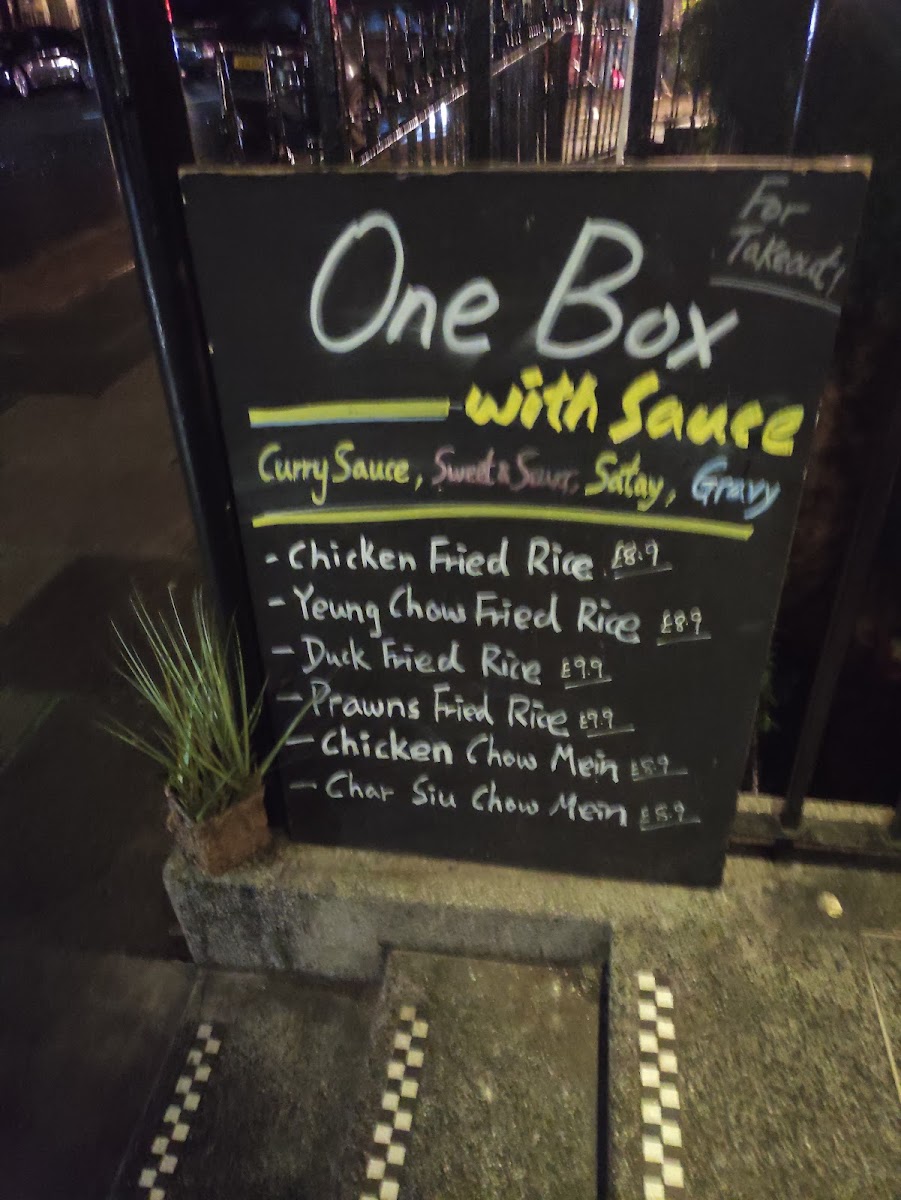 For
Takeout!
One Box
with Sauce
Curry Sauce, Sweet & Sour, Satay, Gravy
- Chicken Fried Rice £8.9
- Yeung Chow Fried Rice £8.9
- Duck Fried Rice £9.9
- Prawns Fried Rice £9.9
- Chicken Chow Mein £8.9
- Char Siu Chow Mein £8.9